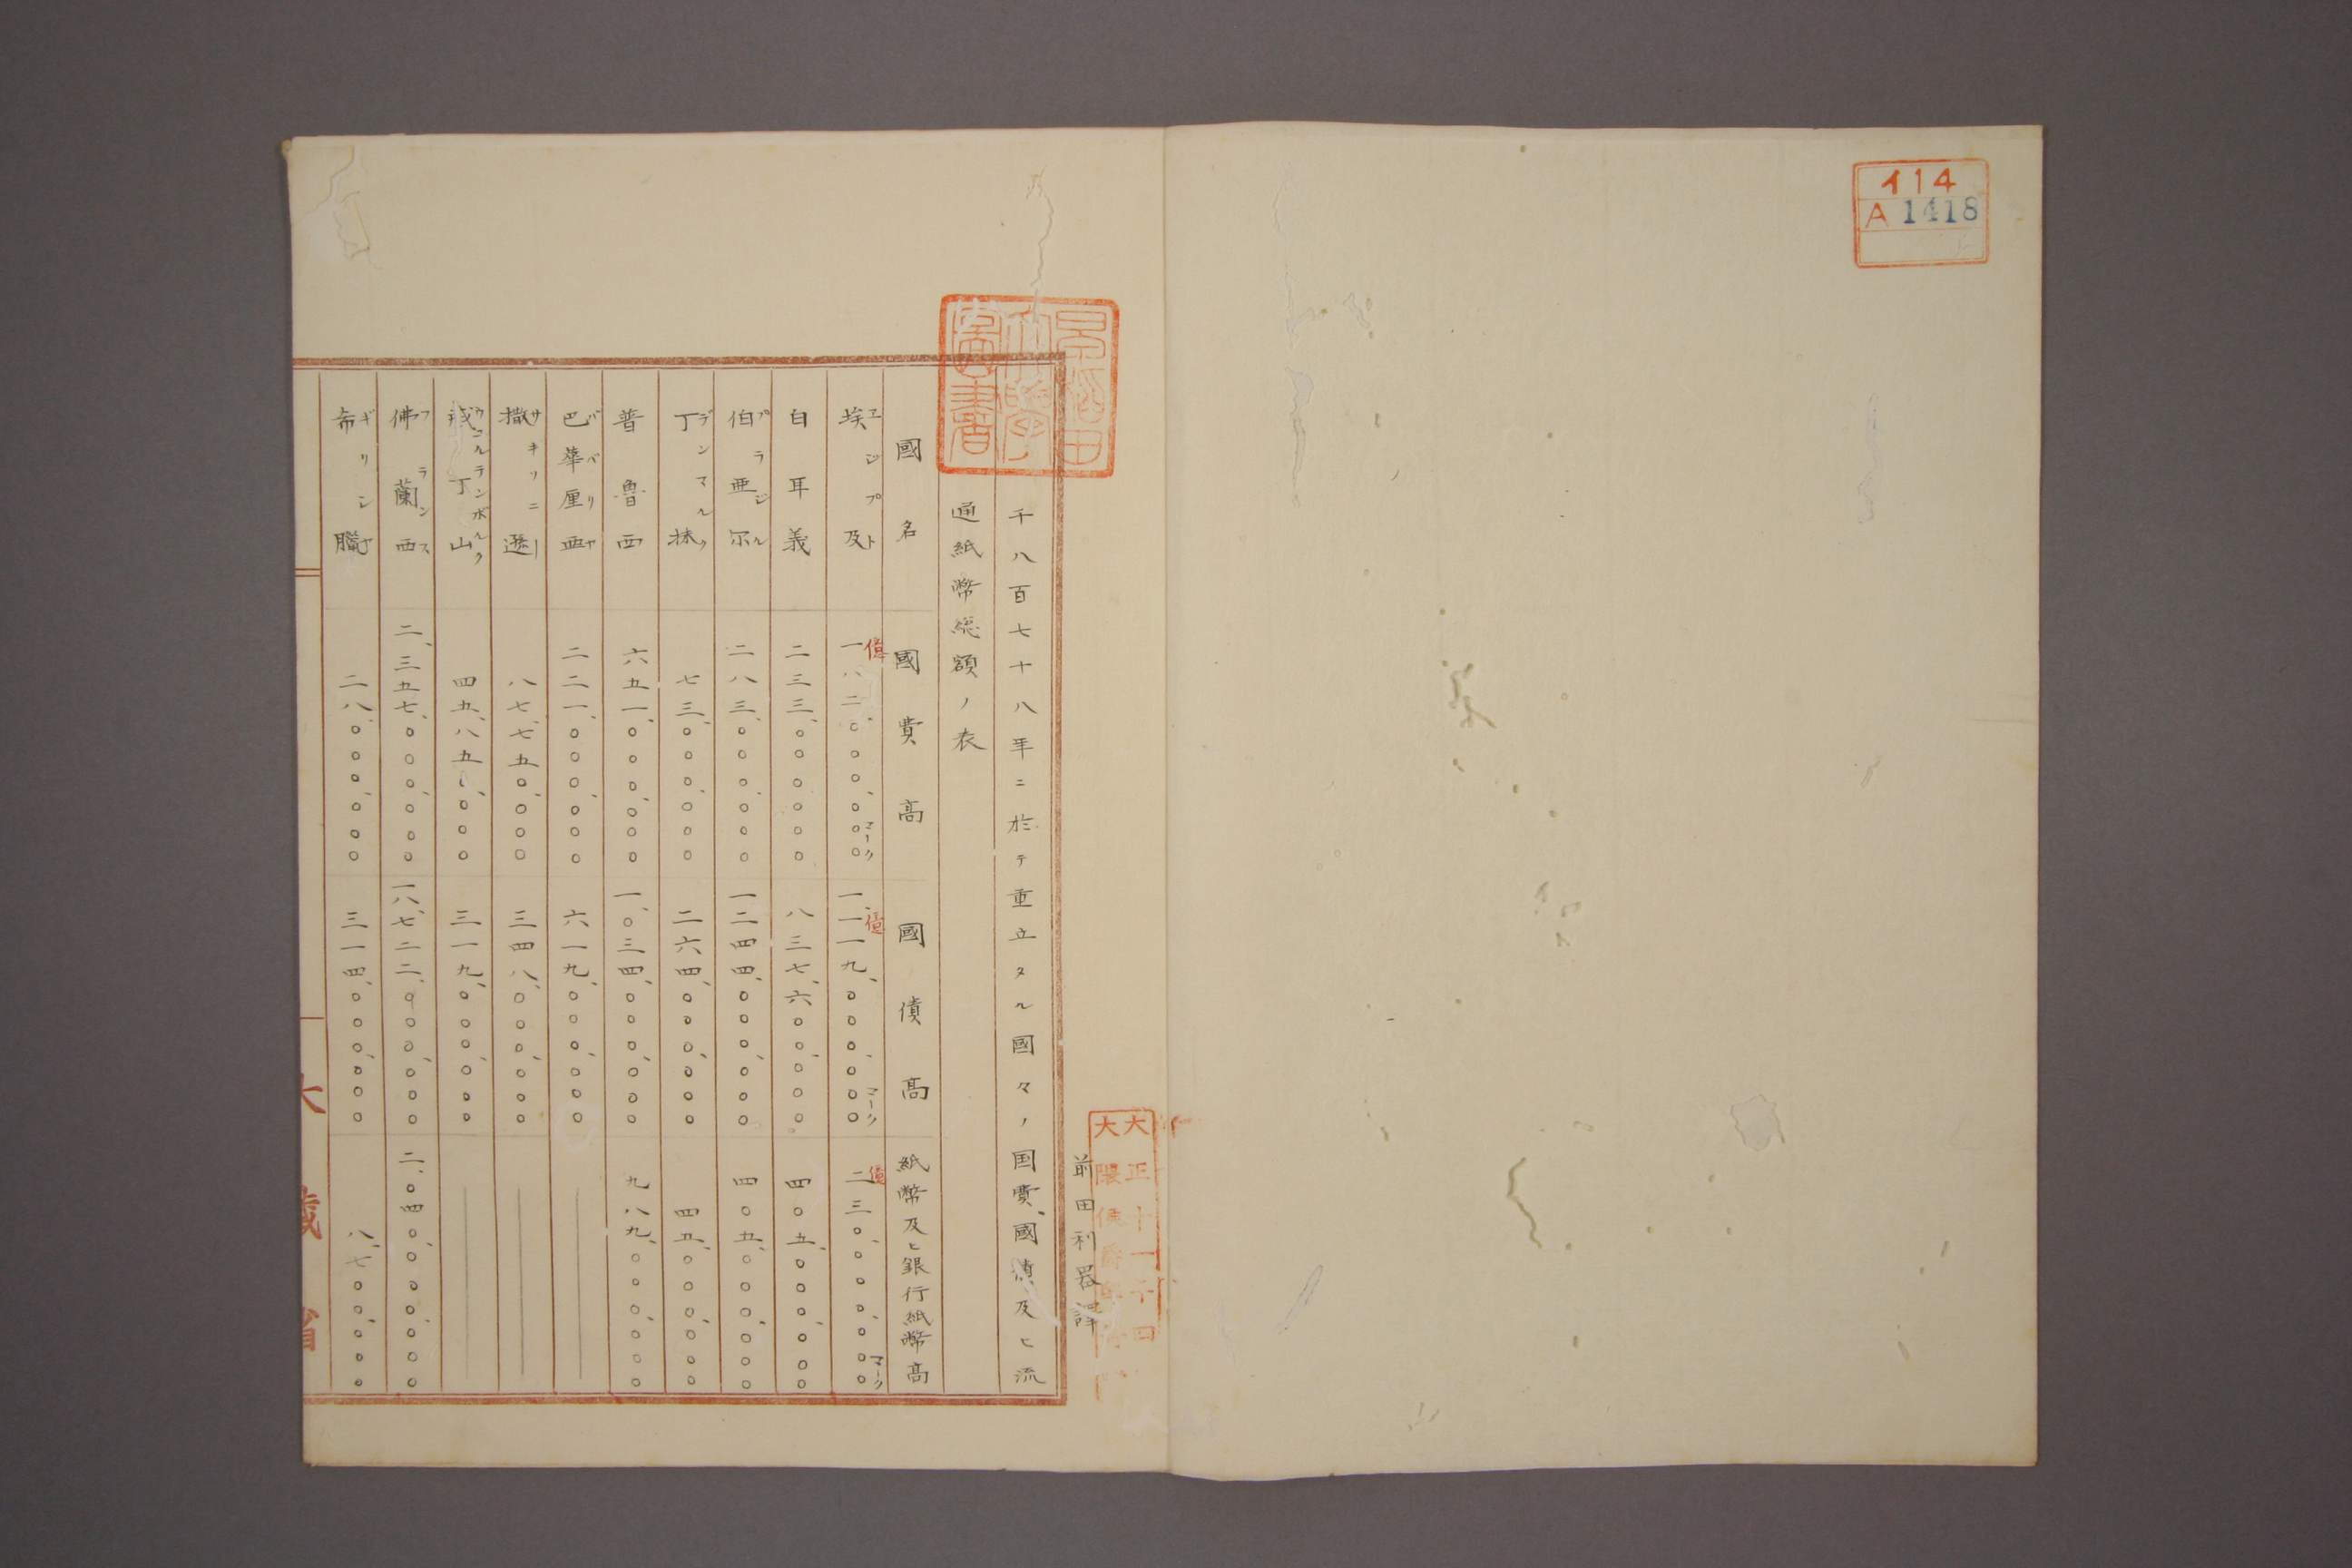 イ14
A 1418
早稲田大學圖書
大正十一年四
大隈侯爵
前田利器譯
千八百七十八年ニ於テ重立タル國々ノ国費、國債及ヒ流
通紙幣総額ノ表
國名 國費高 國債高 紙幣及ヒ銀行紙幣高
埃及 エジプト 一億八二、〇〇〇、〇〇〇マーク 一、一億一九、〇〇〇、〇〇〇マーク 二億三〇、〇〇〇、〇〇〇マーク
白耳義 二三三、〇〇〇〇〇〇 八三七、六〇〇、〇〇〇 四〇五、〇〇〇、〇〇〇
伯亜尓 プラジル 二八三、〇〇〇、〇〇〇 一二四四、〇〇〇、〇〇〇 四〇五、〇〇〇、〇〇〇
丁抹 デンマルク 七三、〇〇〇、〇〇〇 二六四、〇〇〇、〇〇〇 四五、〇〇〇、〇〇〇
普魯西 六五一、〇〇〇、〇〇〇 一、〇三四、〇〇〇、〇〇〇 九八九、〇〇〇、〇〇〇
巴華厘亜 ババリヤ 二二一、〇〇〇、〇〇〇 六一九、〇〇〇、〇〇〇
撒遜 サキソニー 八七、七五〇、〇〇〇 三四八、〇〇〇、〇〇〇
丁山 ウエルテンボルク 四五、八五〇、〇〇〇 三一九、〇〇〇、〇〇〇
佛蘭西 フランス 二、三五七、〇〇〇、〇〇〇 一八、七二二、〇〇〇、〇〇〇 二、〇四〇、〇〇〇、〇〇〇
希臘 ギリシヤ 二八、〇〇〇、〇〇〇 三一四、〇〇〇、〇〇〇 八、七〇〇、〇〇〇
大蔵省